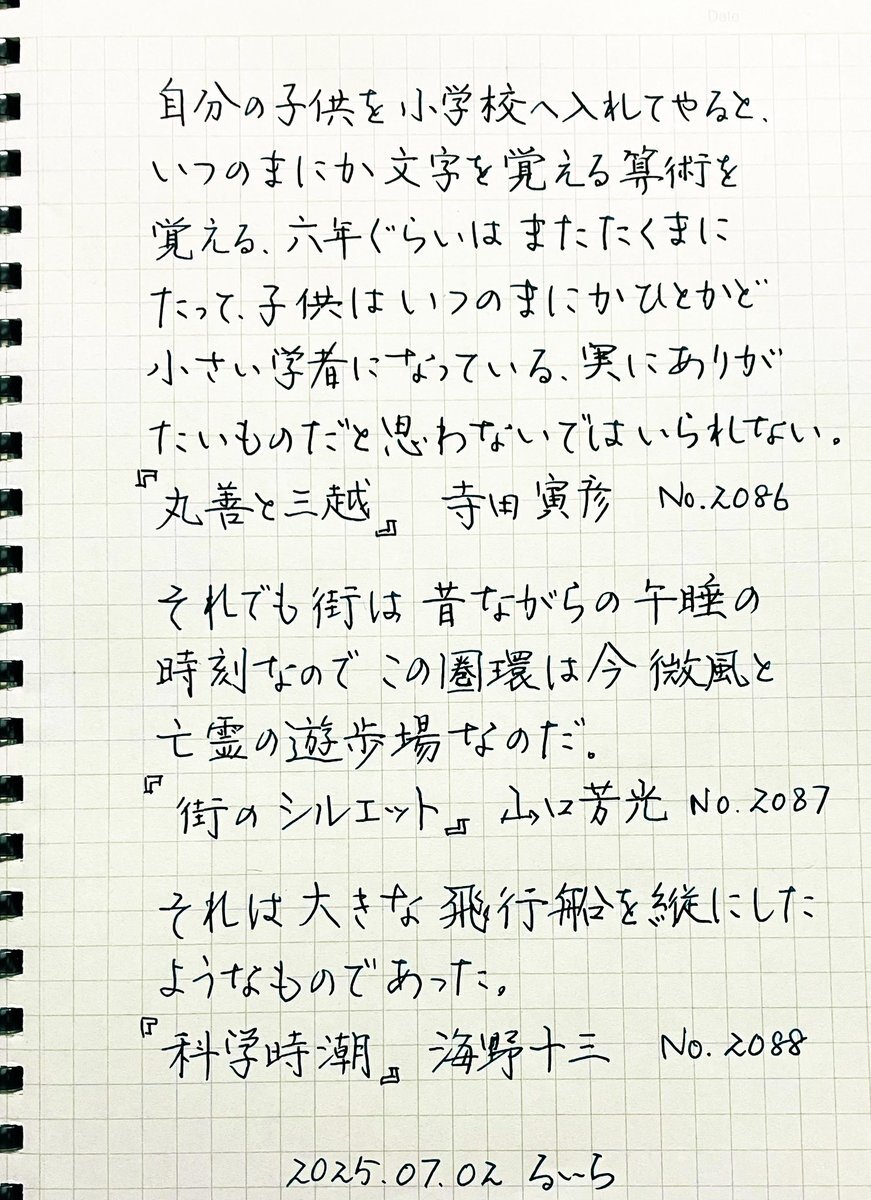 Date
自分の子供を小学校へ入れてやると、
いつのまにか文字を覚える算術を
覚える、六年ぐらいはまたたくまに
たって、子供はいつのまにかひとかど
小さい学者になっている、実にありが
たいものだと思わないではいられない。
『丸善と三越』 寺田寅彦 No.2086
それでも街は昔ながらの午睡の
時刻なのでこの圏環は今微風と
亡霊の遊歩場なのだ。
『街のシルエット』 山口芳光 No.2087
それは大きな飛行船を縦にした
ようなものであった。
『科学時潮』 海野十三 No.2088
2025.07.02 るいら